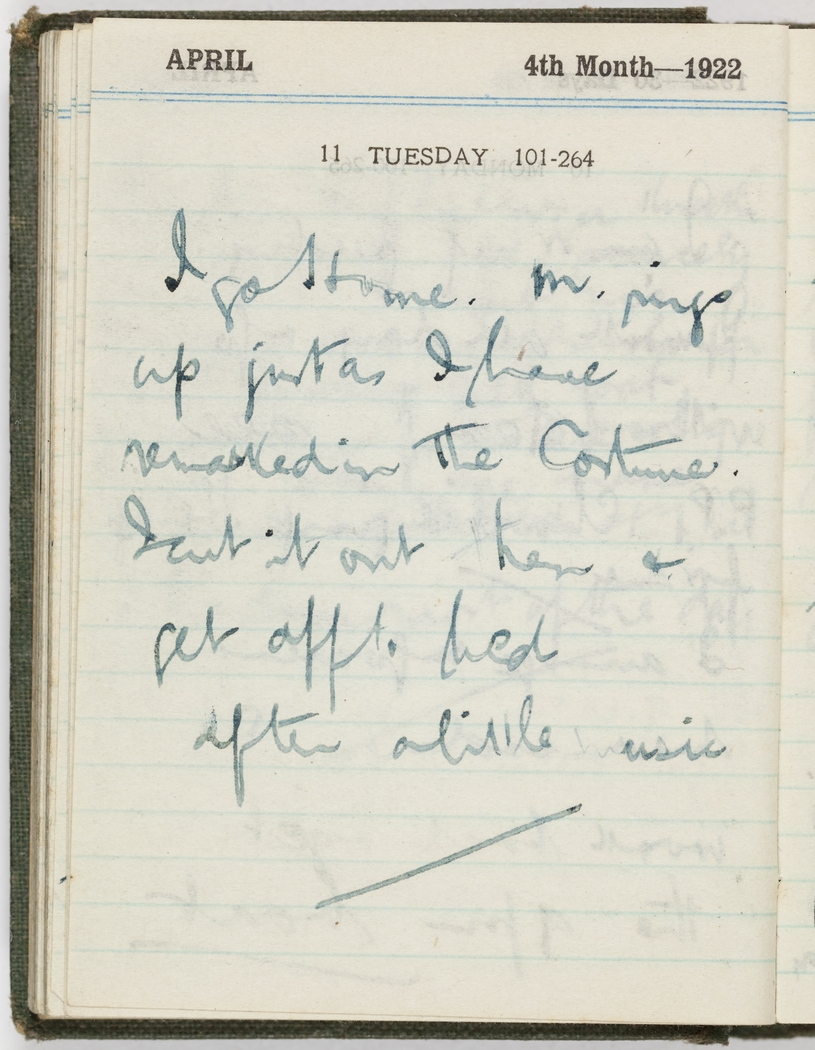 APRIL 4th Month—1922
11 TUESDAY 101-264
I go Home. M. rings
up just as I have
remarked in the Costume.
I cut it out then &
get off t. bed
after a little usic